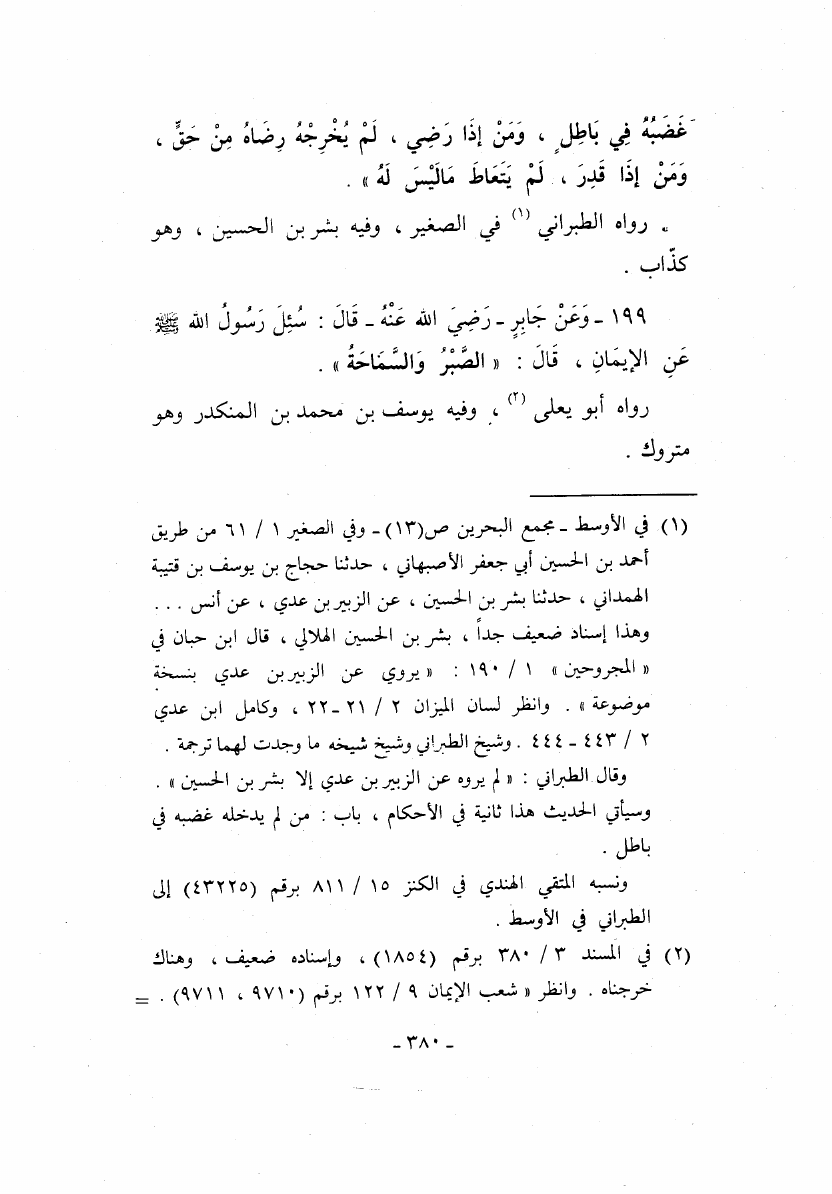 غَضَبُهُ فِي بَاطِلٍ ، وَمَنْ إذَا رَضِي ، لَمْ يُخْرِجْهُ رِضَاهُ مِنْ حَقٍّ ،
وَمَنْ إذَا قَدِرَ ، لَمْ يَتَعَاطَ مَالَيْسَ لَهُ » .
رواه الطبراني (١) في الصغير ، وفيه بشر بن الحسين ، وهو
كذّاب .
١٩٩ - وَعَنْ جَابِرٍ - رَضِيَ الله عَنْهُ - قَالَ : سُئِلَ رَسُولُ الله ﷺ
عَنِ الإيمَانِ ، قَالَ : « الصَّبْرُ وَالسَّمَاحَةُ » .
رواه أبو يعلى (٢) ، وفيه يوسف بن محمد بن المنكدر وهو
متروك .
(١) في الأوسط - مجمع البحرين ص(١٣) - وفي الصغير ١ / ٦١ من طريق
أحمد بن الحسين أبي جعفر الأصبهاني ، حدثنا حجاج بن يوسف بن قتيبة
الهمداني ، حدثنا بشر بن الحسين ، عن الزبير بن عدي ، عن أنس ...
وهذا إسناد ضعيف جداً ، بشر بن الحسين الهلالي ، قال ابن حبان في
« المجروحين » ١ / ١٩٠ : « يروي عن الزبير بن عدي بنسخة
موضوعة » . وانظر لسان الميزان ٢ / ٢١ - ٢٢ ، وكامل ابن عدي
٢ / ٤٤٣ - ٤٤٤ . وشيخ الطبراني وشيخ شيخه ما وجدت لهما ترجمة .
وقال الطبراني : « لم يروه عن الزبير بن عدي إلا بشر بن الحسين » .
وسيأتي الحديث هذا ثانية في الأحكام ، باب : من لم يدخله غضبه في
باطل .
ونسبه المتقي الهندي في الكنز ١٥ / ٨١١ برقم (٤٣٢٢٥) إلى
الطبراني في الأوسط .
(٢) في المسند ٣ / ٣٨٠ برقم (١٨٥٤) ، وإسناده ضعيف ، وهناك
خرجناه . وانظر « شعب الإيمان ٩ / ١٢٢ برقم (٩٧١٠ ، ٩٧١١) . =
- ٣٨٠ -